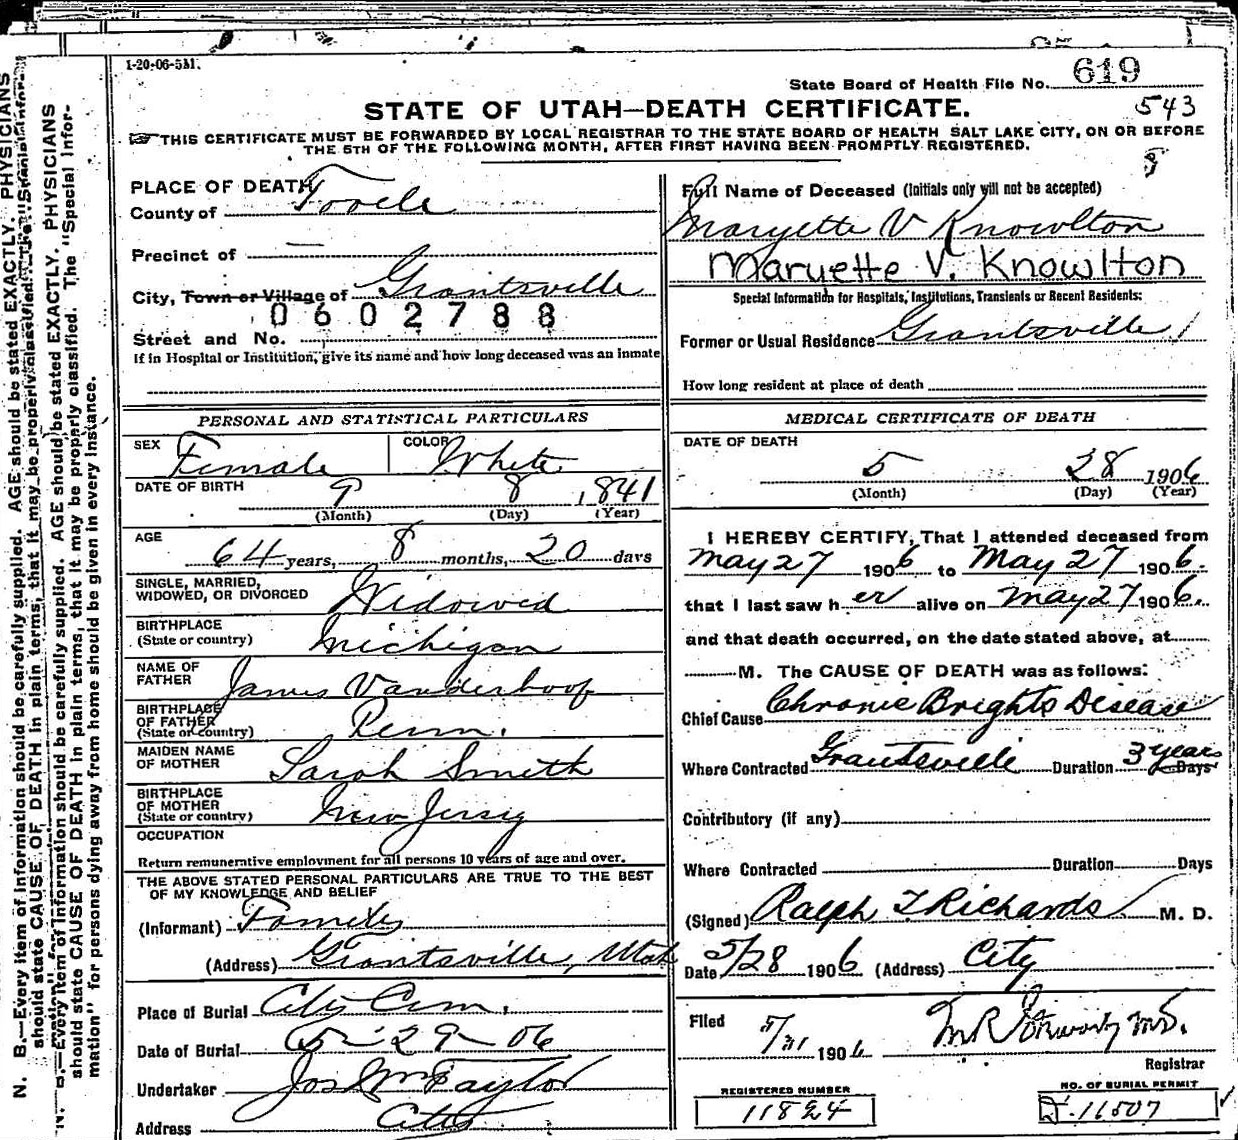 1-20-06-5M.
State Board of Health File No. 619
STATE OF UTAH—DEATH CERTIFICATE.
543
THIS CERTIFICATE MUST BE FORWARDED BY LOCAL REGISTRAR TO THE STATE BOARD OF HEALTH SALT LAKE CITY, ON OR BEFORE
THE 5TH OF THE FOLLOWING MONTH, AFTER FIRST HAVING BEEN PROMPTLY REGISTERED.
PLACE OF DEATH
County of Tooele
Precinct of —
City, Town or Village of Grantsville
0602788
Street and No.
If in Hospital or Institution, give its name and how long deceased was an inmate
PERSONAL AND STATISTICAL PARTICULARS
SEX Female COLOR White
DATE OF BIRTH 9 8 1841
(Month) (Day) (Year)
AGE 64 years, 8 months, 20 days
SINGLE, MARRIED,
WIDOWED, OR DIVORCED Widowed
BIRTHPLACE
(State or country) Michigan
NAME OF
FATHER James Vanderhoof
BIRTHPLACE
OF FATHER
(State or country) Penn.
MAIDEN NAME
OF MOTHER Sarah Smith
BIRTHPLACE
OF MOTHER
(State or country) New Jersy
OCCUPATION
Return remunerative employment for all persons 10 years of age and over.
THE ABOVE STATED PERSONAL PARTICULARS ARE TRUE TO THE BEST
OF MY KNOWLEDGE AND BELIEF
(Informant) Family
(Address) Grantsville, Utah
Place of Burial City Cem.
Date of Burial 5-29-06
Undertaker Jos Wm Taylor
Address City
Full Name of Deceased (Initials only will not be accepted)
Maryette V Knowlton
Maryette V. Knowlton
Special Information for Hospitals, Institutions, Transients or Recent Residents:
Former or Usual Residence Grantsville
How long resident at place of death
MEDICAL CERTIFICATE OF DEATH
DATE OF DEATH
5 28 1906
(Month) (Day) (Year)
I HEREBY CERTIFY, That I attended deceased from
May 27 1906 to May 27 1906.
that I last saw her alive on May 27 1906.
and that death occurred, on the date stated above, at
M. The CAUSE OF DEATH was as follows:
Chief Cause Chronic Brights Disease
Where Contracted Grantsville Duration 3 years Days
Contributory (if any)
Where Contracted Duration Days
(Signed) Ralph T Richards M. D.
Date 5/28 1906 (Address) City
Filed 5/31 1906 M.D.
Registrar
REGISTERED NUMBER
11824
NO. OF BURIAL PERMIT
11507
N. B.—Every item of information should be carefully supplied. AGE should be stated EXACTLY. PHYSICIANS
should state CAUSE OF DEATH in plain terms, that it may be properly classified. The "Special Infor-
mation" for persons dying away from home should be given in every instance.